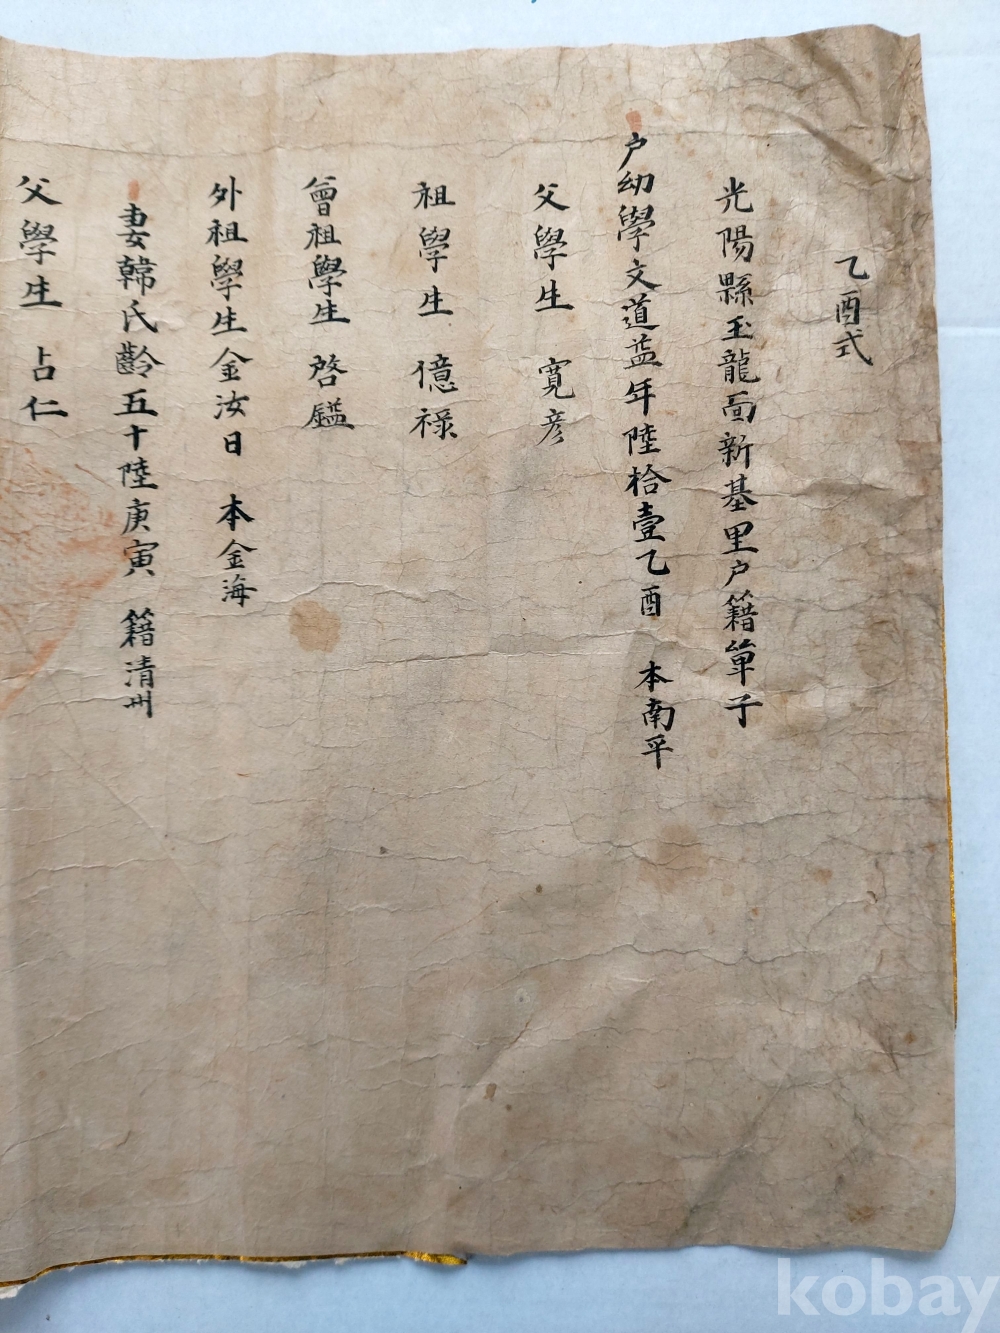 乙酉式
光陽縣玉龍面新基里戶籍單子
戶幼學文道益年陸拾壹乙酉 本南平
父學生 寬彦
祖學生 億祿
曾祖學生 啓鎰
外祖學生金汝日 本金海
妻韓氏齡五十陸庚寅 籍清州
父學生 占仁
kobay